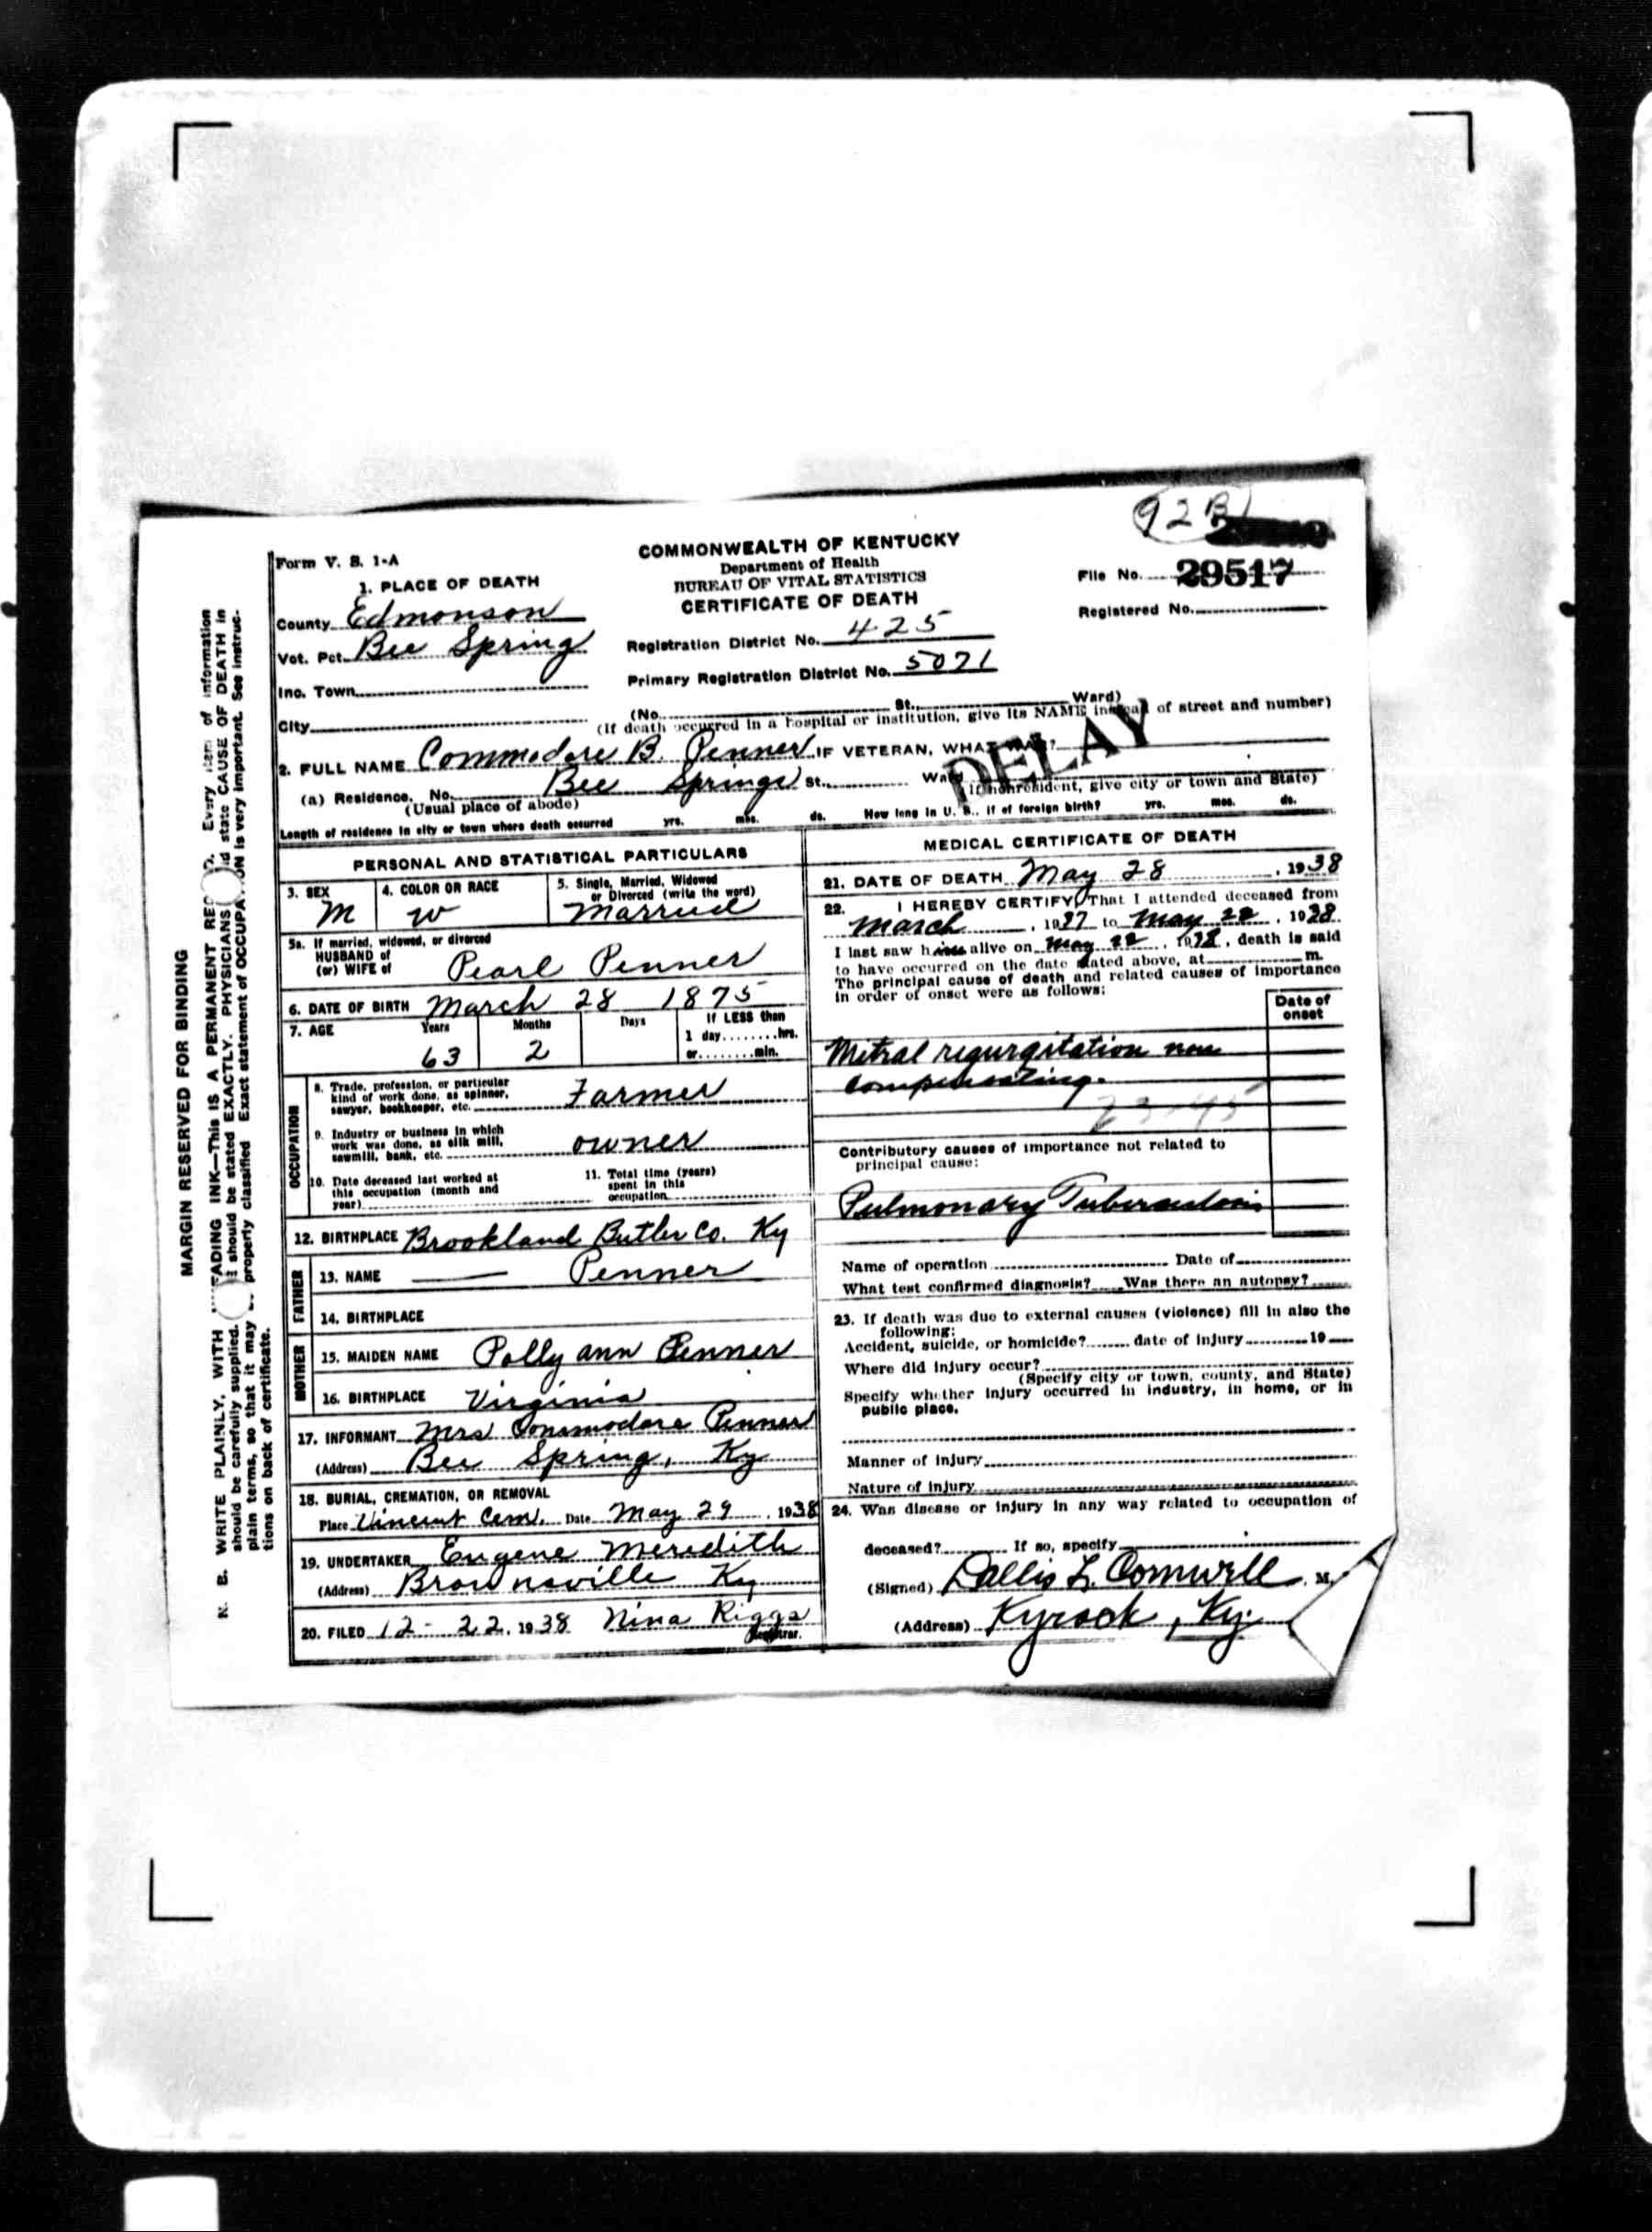 92B
Form V. S. 1-A
COMMONWEALTH OF KENTUCKY
Department of Health
BUREAU OF VITAL STATISTICS
CERTIFICATE OF DEATH
File No. 29517
Registered No.
1. PLACE OF DEATH
County Edmonson
Vot. Pct. Bee Spring
Inc. Town
City
Registration District No. 425
Primary Registration District No. 5071
(No. St., Ward)
(If death occurred in a hospital or institution, give its NAME instead of street and number)
DELAY
2. FULL NAME Commodore B. Penner IF VETERAN, WHAT WAR?
(a) Residence, No. Bee Springs St., Ward
(Usual place of abode) (If nonresident, give city or town and State)
Length of residence in city or town where death occurred yrs. mos. ds. How long in U. S., if of foreign birth? yrs. mos. ds.
PERSONAL AND STATISTICAL PARTICULARS
3. SEX M
4. COLOR OR RACE W
5. Single, Married, Widowed
or Divorced (write the word)
Married
5a. If married, widowed, or divorced
HUSBAND of
(or) WIFE of Pearl Penner
6. DATE OF BIRTH March 28 1875
7. AGE Years Months Days If LESS than
1 day........hrs.
63 2 or........min.
OCCUPATION
8. Trade, profession, or particular
kind of work done, as spinner,
sawyer, bookkeeper, etc. Farmer
9. Industry or business in which
work was done, as silk mill,
sawmill, bank, etc. owner
10. Date deceased last worked at
this occupation (month and
year)
11. Total time (years)
spent in this
occupation
12. BIRTHPLACE Brookland Butler Co. Ky
FATHER
13. NAME —— Penner
14. BIRTHPLACE
MOTHER
15. MAIDEN NAME Polly ann Penner
16. BIRTHPLACE Virginia
17. INFORMANT Mrs Commodore Penner
(Address) Bee Spring, Ky
18. BURIAL, CREMATION, OR REMOVAL
Place Vincent Cem. Date May 29, 1938
19. UNDERTAKER Eugene Meredith
(Address) Brownsville Ky
20. FILED 12-22, 1938 Nina Riggs
Registrar.
MEDICAL CERTIFICATE OF DEATH
21. DATE OF DEATH May 28, 1938
22. I HEREBY CERTIFY, That I attended deceased from
March, 1937 to May 22, 1938
I last saw him alive on May 22, 1938, death is said
to have occurred on the date stated above, at m.
The principal cause of death and related causes of importance
in order of onset were as follows:
Date of
onset
Mitral regurgitation non
compensating.
Contributory causes of importance not related to
principal cause:
Pulmonary Tuberculosis
Name of operation Date of
What test confirmed diagnosis? Was there an autopsy?
23. If death was due to external causes (violence) fill in also the
following:
Accident, suicide, or homicide? date of injury 19
Where did injury occur?
(Specify city or town, county, and State)
Specify whether injury occurred in industry, in home, or in
public place.
Manner of injury
Nature of injury
24. Was disease or injury in any way related to occupation of
deceased? If so, specify
(Signed) Dallis L. Cornwell, M.
(Address) Kyrock, Ky.
MARGIN RESERVED FOR BINDING
N. B. WRITE PLAINLY, WITH FADING INK—THIS IS A PERMANENT Every item of information
should be carefully supplied. should be stated EXACTLY. PHYSICIANS state CAUSE OF DEATH in
plain terms, so that it may properly classified Exact statement of OCCUPATION is very important. See instruc-
tions on back of certificate.